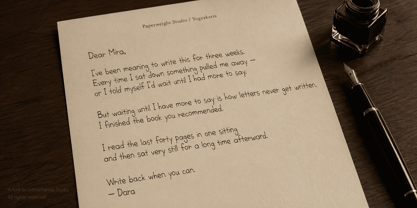 Paperweight Studio / Yogyakarta
Dear Mira,
I've been meaning to write this for three weeks.
Every time I sat down something pulled me away —
or I told myself I'd wait until I had more to say.
But waiting until I have more to say is how letters never get written.
I finished the book you recommended.
I read the last forty pages in one sitting
and then sat very still for a long time afterward.
Write back when you can.
— Dara